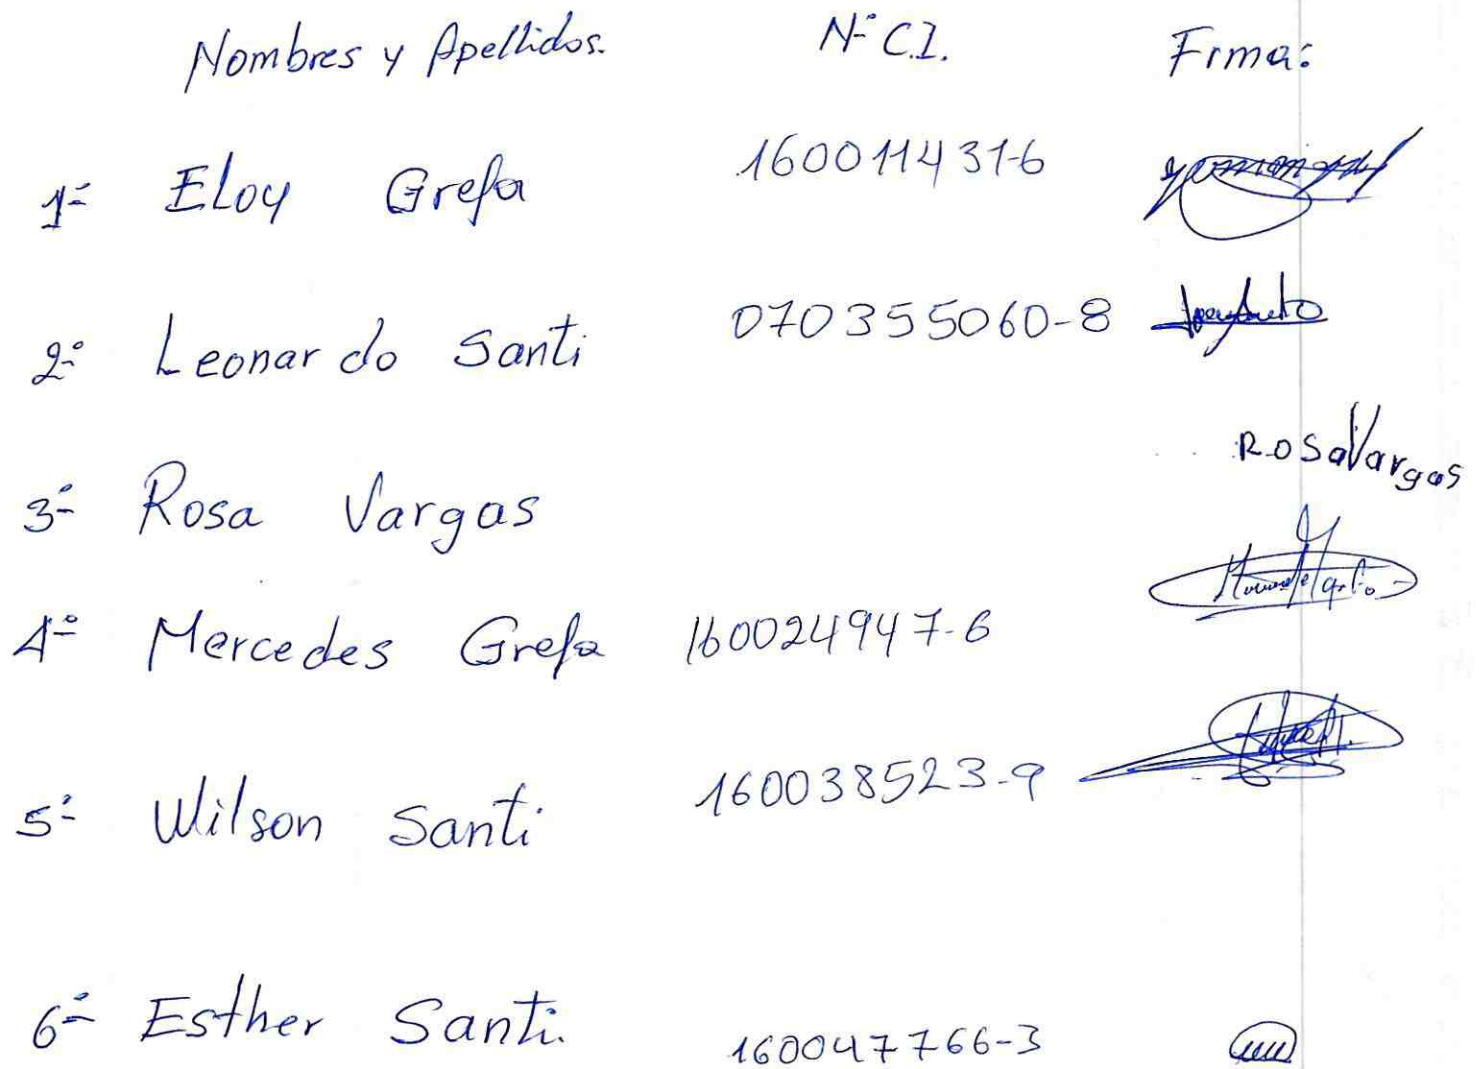 Nombres y Apellidos. Nº C.I. Firma:
1º Eloy Grefa 160011431-6
2º Leonardo Santi 070355060-8
3º Rosa Vargas Rosa Vargas
4º Mercedes Grefa 160024947-6
5º Wilson Santi 160038523-9
6º Esther Santi. 160047766-3